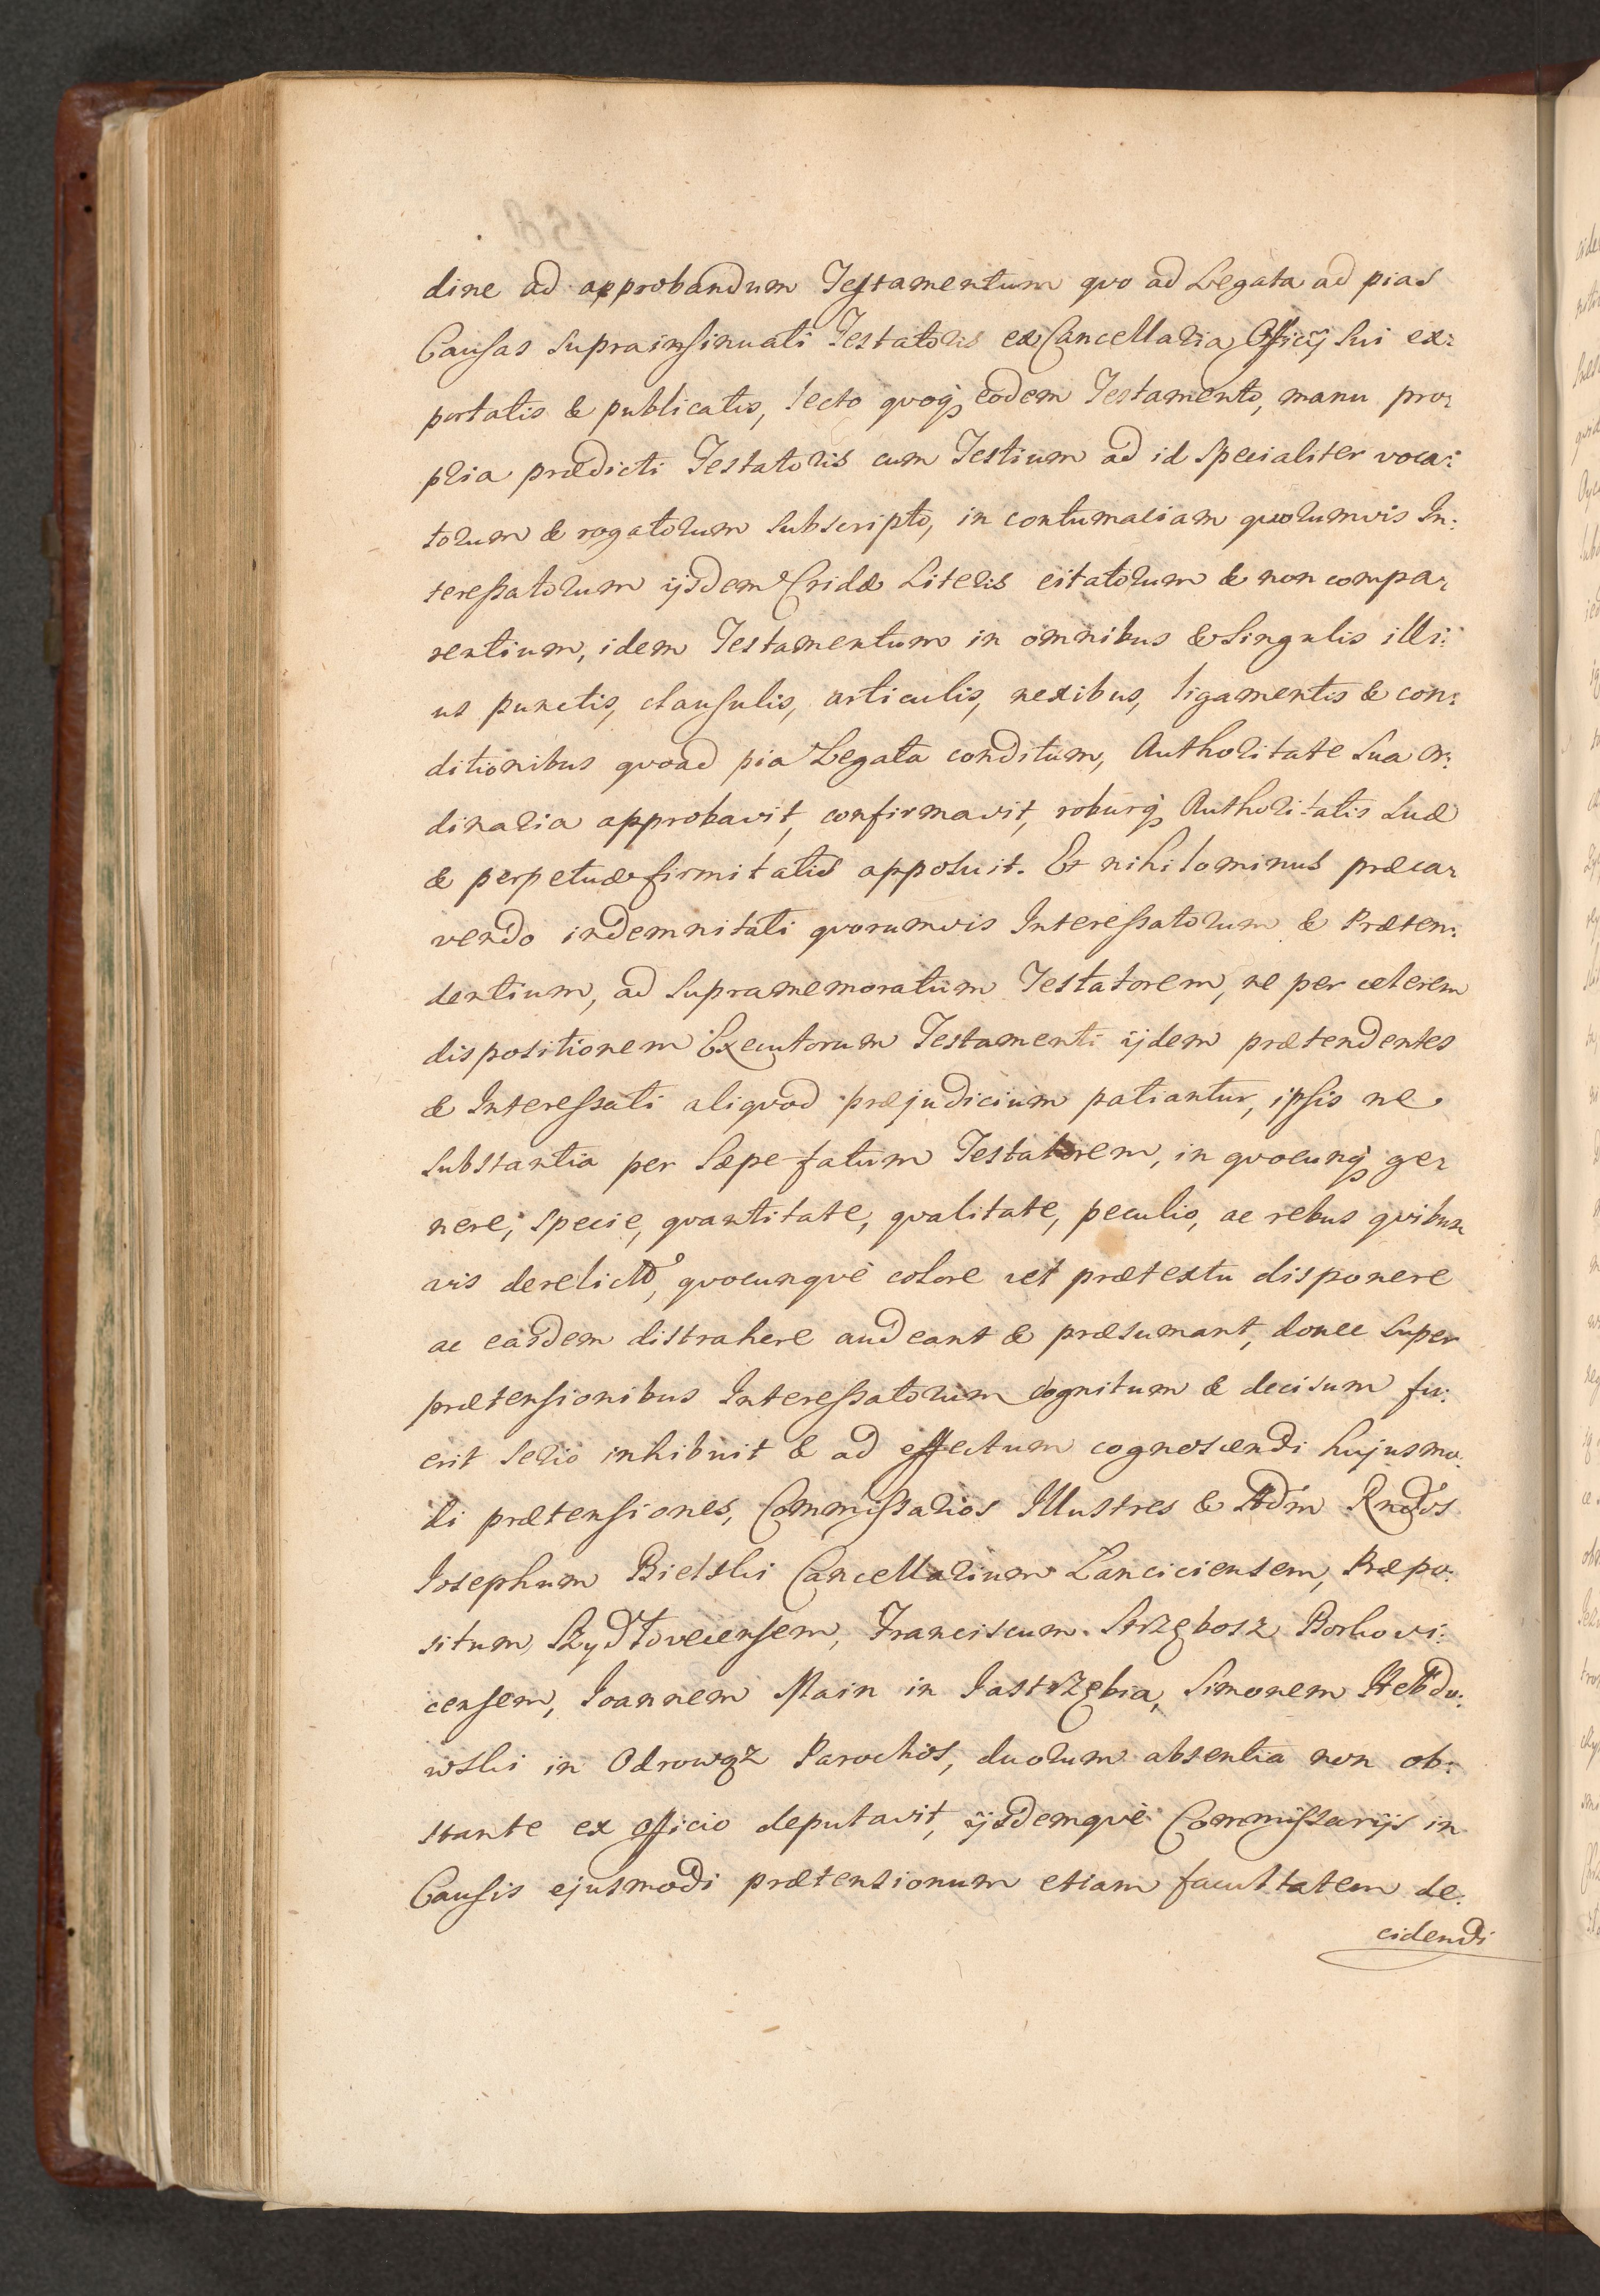 dine ad approbandum Testamentum quo ad Legata ad pias
Causas suprainsinuati Testatoris ex Cancellaria Officij sui ex:
portatis & publicatis, lecto quoq; eodem Testamento, manu pro:
pria prædicti Testatoris cum Testium ad id specialiter voca:
torum & rogatorum subscripto, in contumaciam quorumvis In:
teressatorum ijsdem Cridæ Literis citatorum & non compa:
rentium, idem Testamentum in omnibus & singulis illi:
us punctis, clausulis, articulis, nexibus, ligamentis & con:
ditionibus quoad pia Legata conditum, Authoritate sua Or:
dinaria approbavit, confirmavit, roburq; Authoritatis suæ
& perpetuæ firmitatis apposuit. Et nihilominus præca:
vendo indemnitati quorumvis Interessatorum & Præten:
dentium, ad supramemoratum Testatorem, ne per celerem
dispositionem Executorum Testamenti ijdem prætendentes
& Interessati aliquod præjudicium patiantur, ipsis ne
substantia per sæpefatum Testatorem, in quocunq; ge:
nere, specie, quantitate, qualitate, peculio, ac rebus quibus:
vis derelicto, quocunquè colore vel prætextu disponere
ac easdem distrahere audeant & præsumant, donec super
prætensionibus Interessatorum cognitum & decisum fu:
erit serio inhibuit & ad effectum cognoscendi hujusmo:
di prætensiones, Commissarios Illustres & Adm Rndos
Josephum Bielski Cancellarium Lanciciensem, Præpo:
situm Szydłoveciensem, Franciscum Strzębosz Borkovi:
censem, Joannem Main in Jastrzębia, Simonem Hebdo:
wski in Odrowąz Parochos, duorum absentia non ob:
stante ex officio deputavit, ijsdemquè Commissarijs in
Causis ejusmodi prætensionum etiam facultatem de:
cidendi